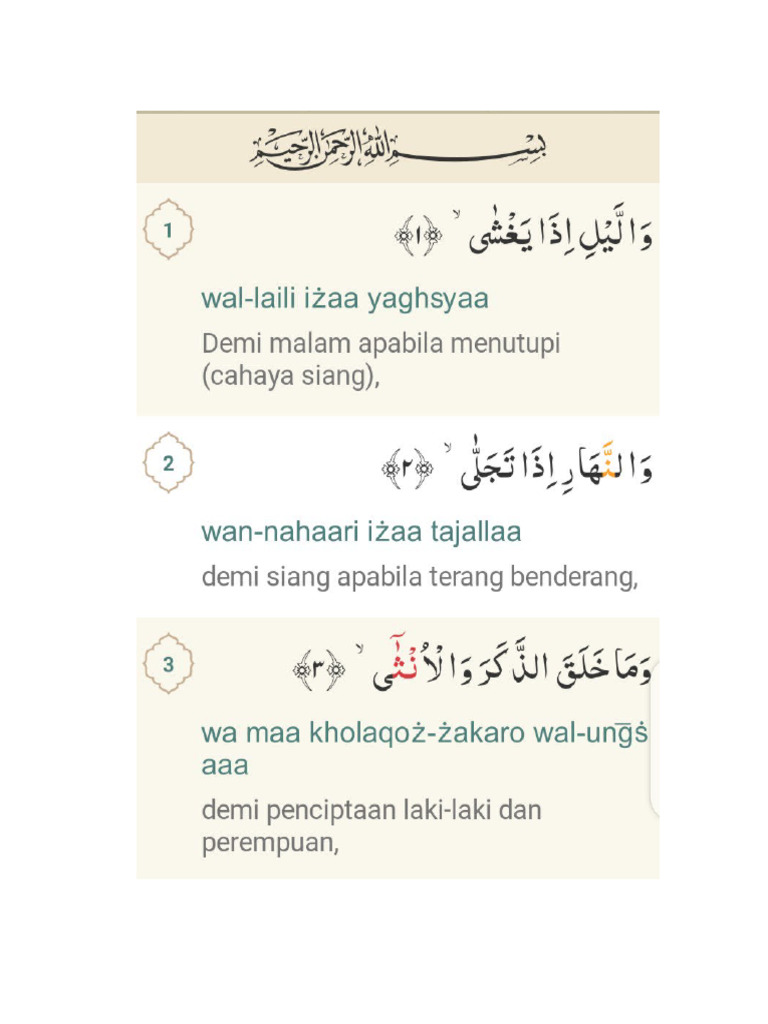 بِسْمِ اللّٰهِ الرَّحْمٰنِ الرَّحِيْمِ
1
وَالَّيْلِ اِذَا يَغْشٰىۙ ﴿١﴾
wal-laili iżaa yaghsyaa
Demi malam apabila menutupi
(cahaya siang),
2
وَالنَّهَارِ اِذَا تَجَلّٰىۙ ﴿٢﴾
wan-nahaari iżaa tajallaa
demi siang apabila terang benderang,
3
وَمَا خَلَقَ الذَّكَرَ وَالْاُنْثٰٓىۙ ﴿٣﴾
wa maa kholaqoż-żakaro wal-ung̅ṡ
aaa
demi penciptaan laki-laki dan
perempuan,